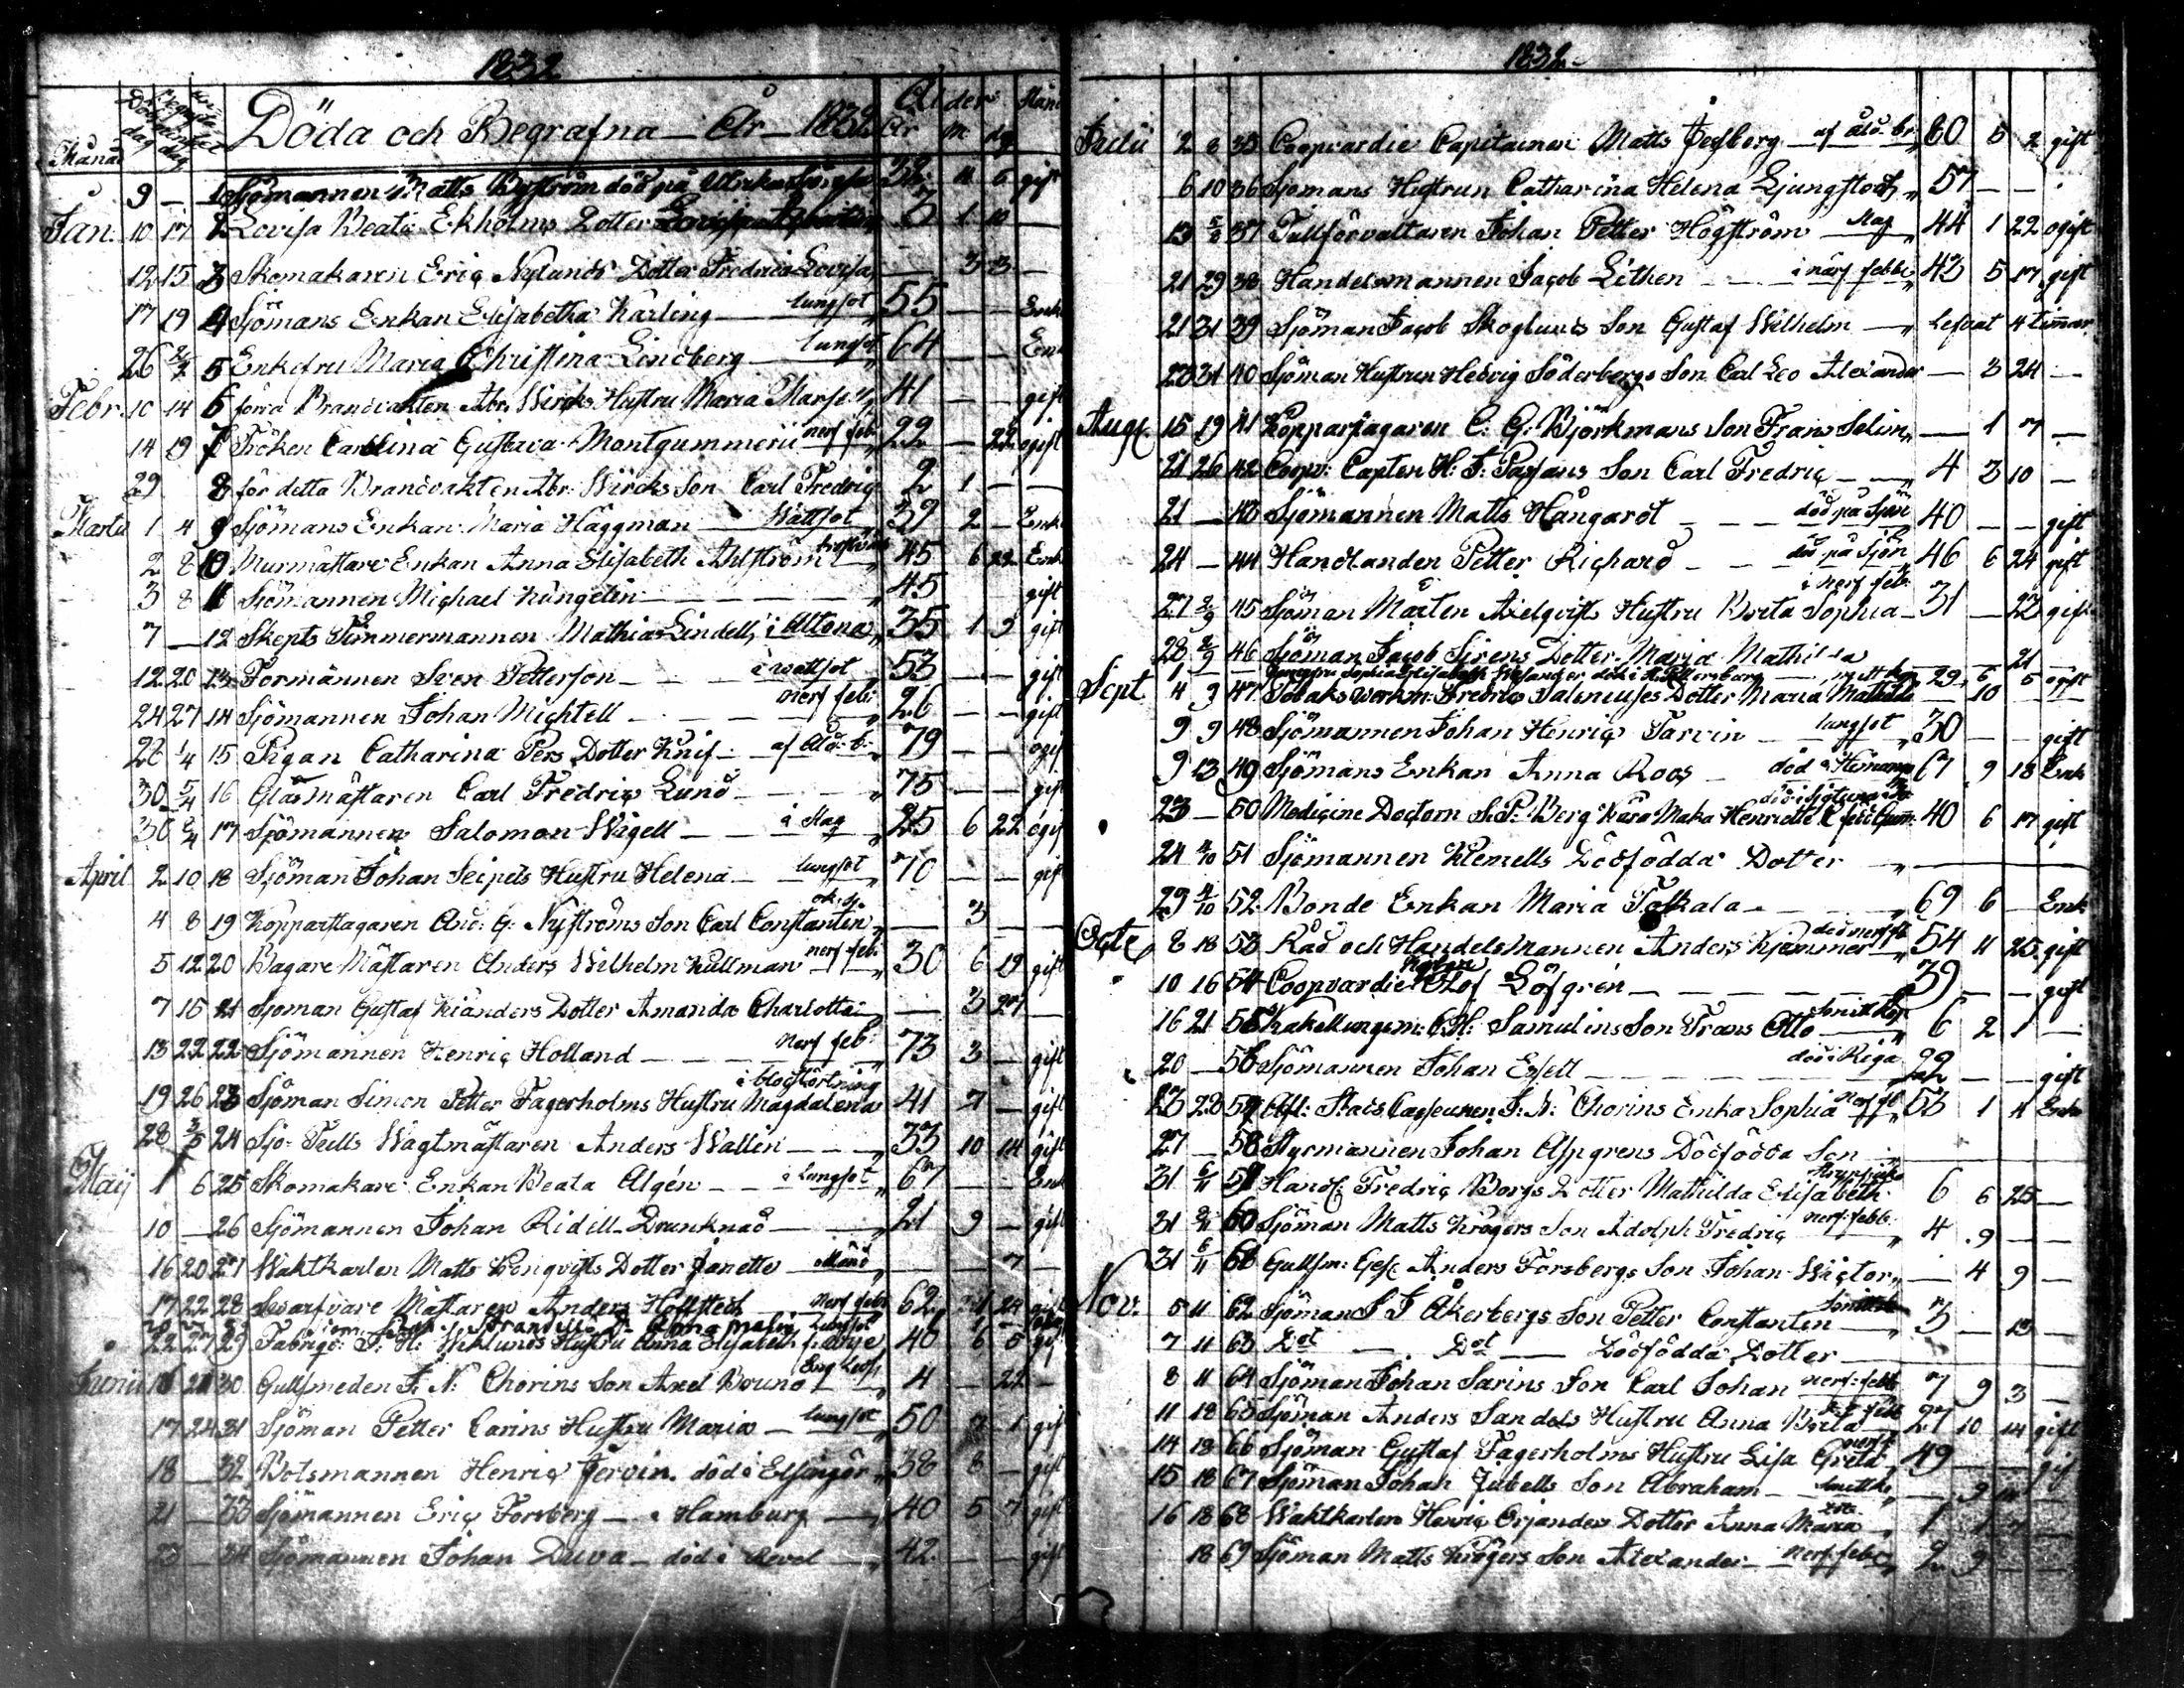 1832
Månad Döda och Begrafna År 1832 Ålder Stånd
År M. dg.
9 — 1 Sjömannen Matts Byström död på 11 5 gift
Jan. 10 17 2 Lovisa Beata Ekholms Dotter 3 1 10 —
12 15 3 Skomakaren Eriç Nylunds Dotter Fredrica Lovisa — 3 3 —
17 19 4 Sjömans Enkan Elisabetha Kärling lungsot 55 — — Enk
26 2/2 5 Enkefru Maria Christina Lindberg lungsot 64 — — Enk
Febr. 10 14 6 förra Brandvakten Abr. Wircks Hustru Maria 41 — — gift
14 19 7 Fröken Carolina Gustava Montgummerii nerf feb. 22 — 22 ogift
29 8 för detta Brandvakten Abr. Wircks Son Carl Fredriç 2 1 — —
Martii 1 4 9 Sjömans Enkan Maria Häggman Wattsot 39 2 — Enk
2 8 10 Murmästare Enkan Anna Elisabeth Ahlström 45 6 22 Enk
3 8 11 Sjömannen Michael Küngelin 45 gift
7 — 12 Skepts Timmermannen Mathias Lindell, i Altona 35 1 9 gift
12 20 13 Formännen Sven Petterson i wattsot 53 — — gift
24 27 14 Sjömannen Johan Michtell nerf feb. 26 — — gift
28 1/4 15 Pigan Catharina Pers Dotter Knif af Åld. b. 79 — — ogif
30 5/4 16 Glasmästaren Carl Fredriç Lund 75 — — gift
30 8/4 17 Sjömannen Salomon Wigell i Slag 25 6 22 ogif
April 2 10 18 Sjöman Johan Seipels Hustru Helena lungsot 70 — — gift
4 8 19 Kopparslagaren And. G. Nyströms Son Carl Constantin — 3 — —
5 12 20 Bagare Mästaren Anders Wilhelm Kullman nerf feb. 30 6 19 gift
7 15 21 Sjöman Gustaf Kianders Dotter Amanda Charlotta — 3 27 —
13 22 22 Sjömannen Henriç Holland nerf feb. 73 3 — gift
19 26 23 Sjöman Simon Petter Fagerholms Hustru Magdalena i blodstörtning 41 7 — gift
28 3/5 24 Sjö Tulls Wagtmästaren Anders Wallin 33 10 14 gift
Maij 1 6 25 Skomakare Enkan Beata Algén i Lungsot 67 — — Enk
10 — 26 Sjömannen Johan Ridell Drunknad 21 9 — gift
16 20 27 Waktkarlen Matts Kenqvists Dotter Janette — — 7 —
17 22 28 Swarfvare Mästaren Anders Hollsted nerf feb. 62 24 gift
22 27 29 Fabriqö. J. H. Weklunds Hustru Anna Elisabeth 40 6 5 gif
Junii 30 Gullsmeden J. N. Chorins Son Axel Bruno 4 — 22 —
17 24 31 Sjöman Petter Carins Hustru Maria lungsot 50 1 gif
18 — 32 Botsmannen Henriç Jervin död i Elsingör 38 8 — gift
21 — 33 Sjömannen Eriç Forsberg i Hamburg 40 5 7 gift
23 — 34 Sjömannen Johan Duva död i Revel 42 — — gift
1832
Julii 2 8 35 Coopvardie Capitainen Matts Jedberg af Åld. br. 80 5 2 gift
6 10 36 Sjömans Hustrun Catharina Helena Ljungstedt 57 — —
13 5/8 37 Tullförvaltaren Johan Petter Högström Slag 44 1 22 ogift
21 29 38 Handelsmannen Jacob Lithen i närf febbe 43 5 17 gift
21 31 39 Sjöman Jaçob Skoglunds Son Gustaf Wilhelm Lefvat 4 timmar
22 31 40 Sjöman Hustrun Hedvig Söderbergs Son Carl Leo Alexander — 3 24 —
Aug. 15 19 41 Kopparslagaren C. G. Björkmans Son Frans Selim — 1 7 —
21 26 42 Coopv. Capten H. J. Son Carl Fredriç 4 3 10 —
21 — 43 Sjömannen Matts Hångardt död på Sjön 40 — — gift
24 — 44 Handlanden Petter Richard död på Sjön 46 6 24 gift
27 2/9 45 Sjöman Mårten Axelqvists Hustru Brita Sophia i nerf feb. 31 — 22 gift
28 2/9 46 Sjöman Jacob Sirens Dotter Maria Mathilda 21 —
Sept 4 9 47 Tobaks workm. Fredriç Saleniuses Dotter Maria Mathilda — 10 —
9 9 48 Sjömannen Johan Henriç Tarvin lungsot 30 — — gift
9 13 49 Sjömans Enkan Anna Roos 67 9 18 Enk
23 — 50 Medicine Doctorn S. P. Berg kära Maka Henriette 40 6 17 gift
24 4/10 51 Sjömannen Klemells Dödfödda Dotter
29 4/10 52 Bonde Enkan Maria Tokkala 69 6 — Enk
Octe 8 18 53 Råd och Handelsmannen Anders Kjemmer död nerf f. 54 11 25 gift
10 16 54 Coopvardie Olof Löfgrén 39 — — gift
16 21 55 Kakellungsm. C. H. Samulins Son Frans Otto 6 2 1 —
20 — 56 Sjömannen Johan Essell död i Riga 22 — — gift
23 28 57 Afl. Stads Casseuren J. N. Chorins Enka Sophia 53 1 4 Enk
27 — 58 Styrmannen Johan Aspgrens Dödfödda Son
31 6/11 59 Handl. Fredriç Borgs Dotter Mathilda Elisabeth 6 6 25 —
31 60 Sjöman Matts Krögers Son Adolph Fredriç nerf febb. 4 9 — —
31 6/11 61 Gullsm. Gesc. Anders Forsbergs Son Johan Wiçtor — 4 9 —
Nov. 5 11 62 Sjöman J. J. Åkerbergs Son Petter Constantin 3 — 13 —
7 11 63 Dot — Dot — Dödfödda Dotter
8 11 64 Sjöman Johan Sarins Son Carl Johan nerf febb 7 9 3 —
11 18 65 Sjöman Anders Sandels Hustru Anna Brita 27 10 14 gift
14 18 66 Sjöman Gustaf Fagerholms Hustru Lisa Greta 49 — — gif
15 18 67 Sjöman Johan Jubells Son Abraham — 9
16 18 68 Waktkarlen Henriç Orjanders Dotter Anna Maria 1 1 7 —
18 69 Sjöman Matts Krögers Son Alexander nerf feb. 2 9 —